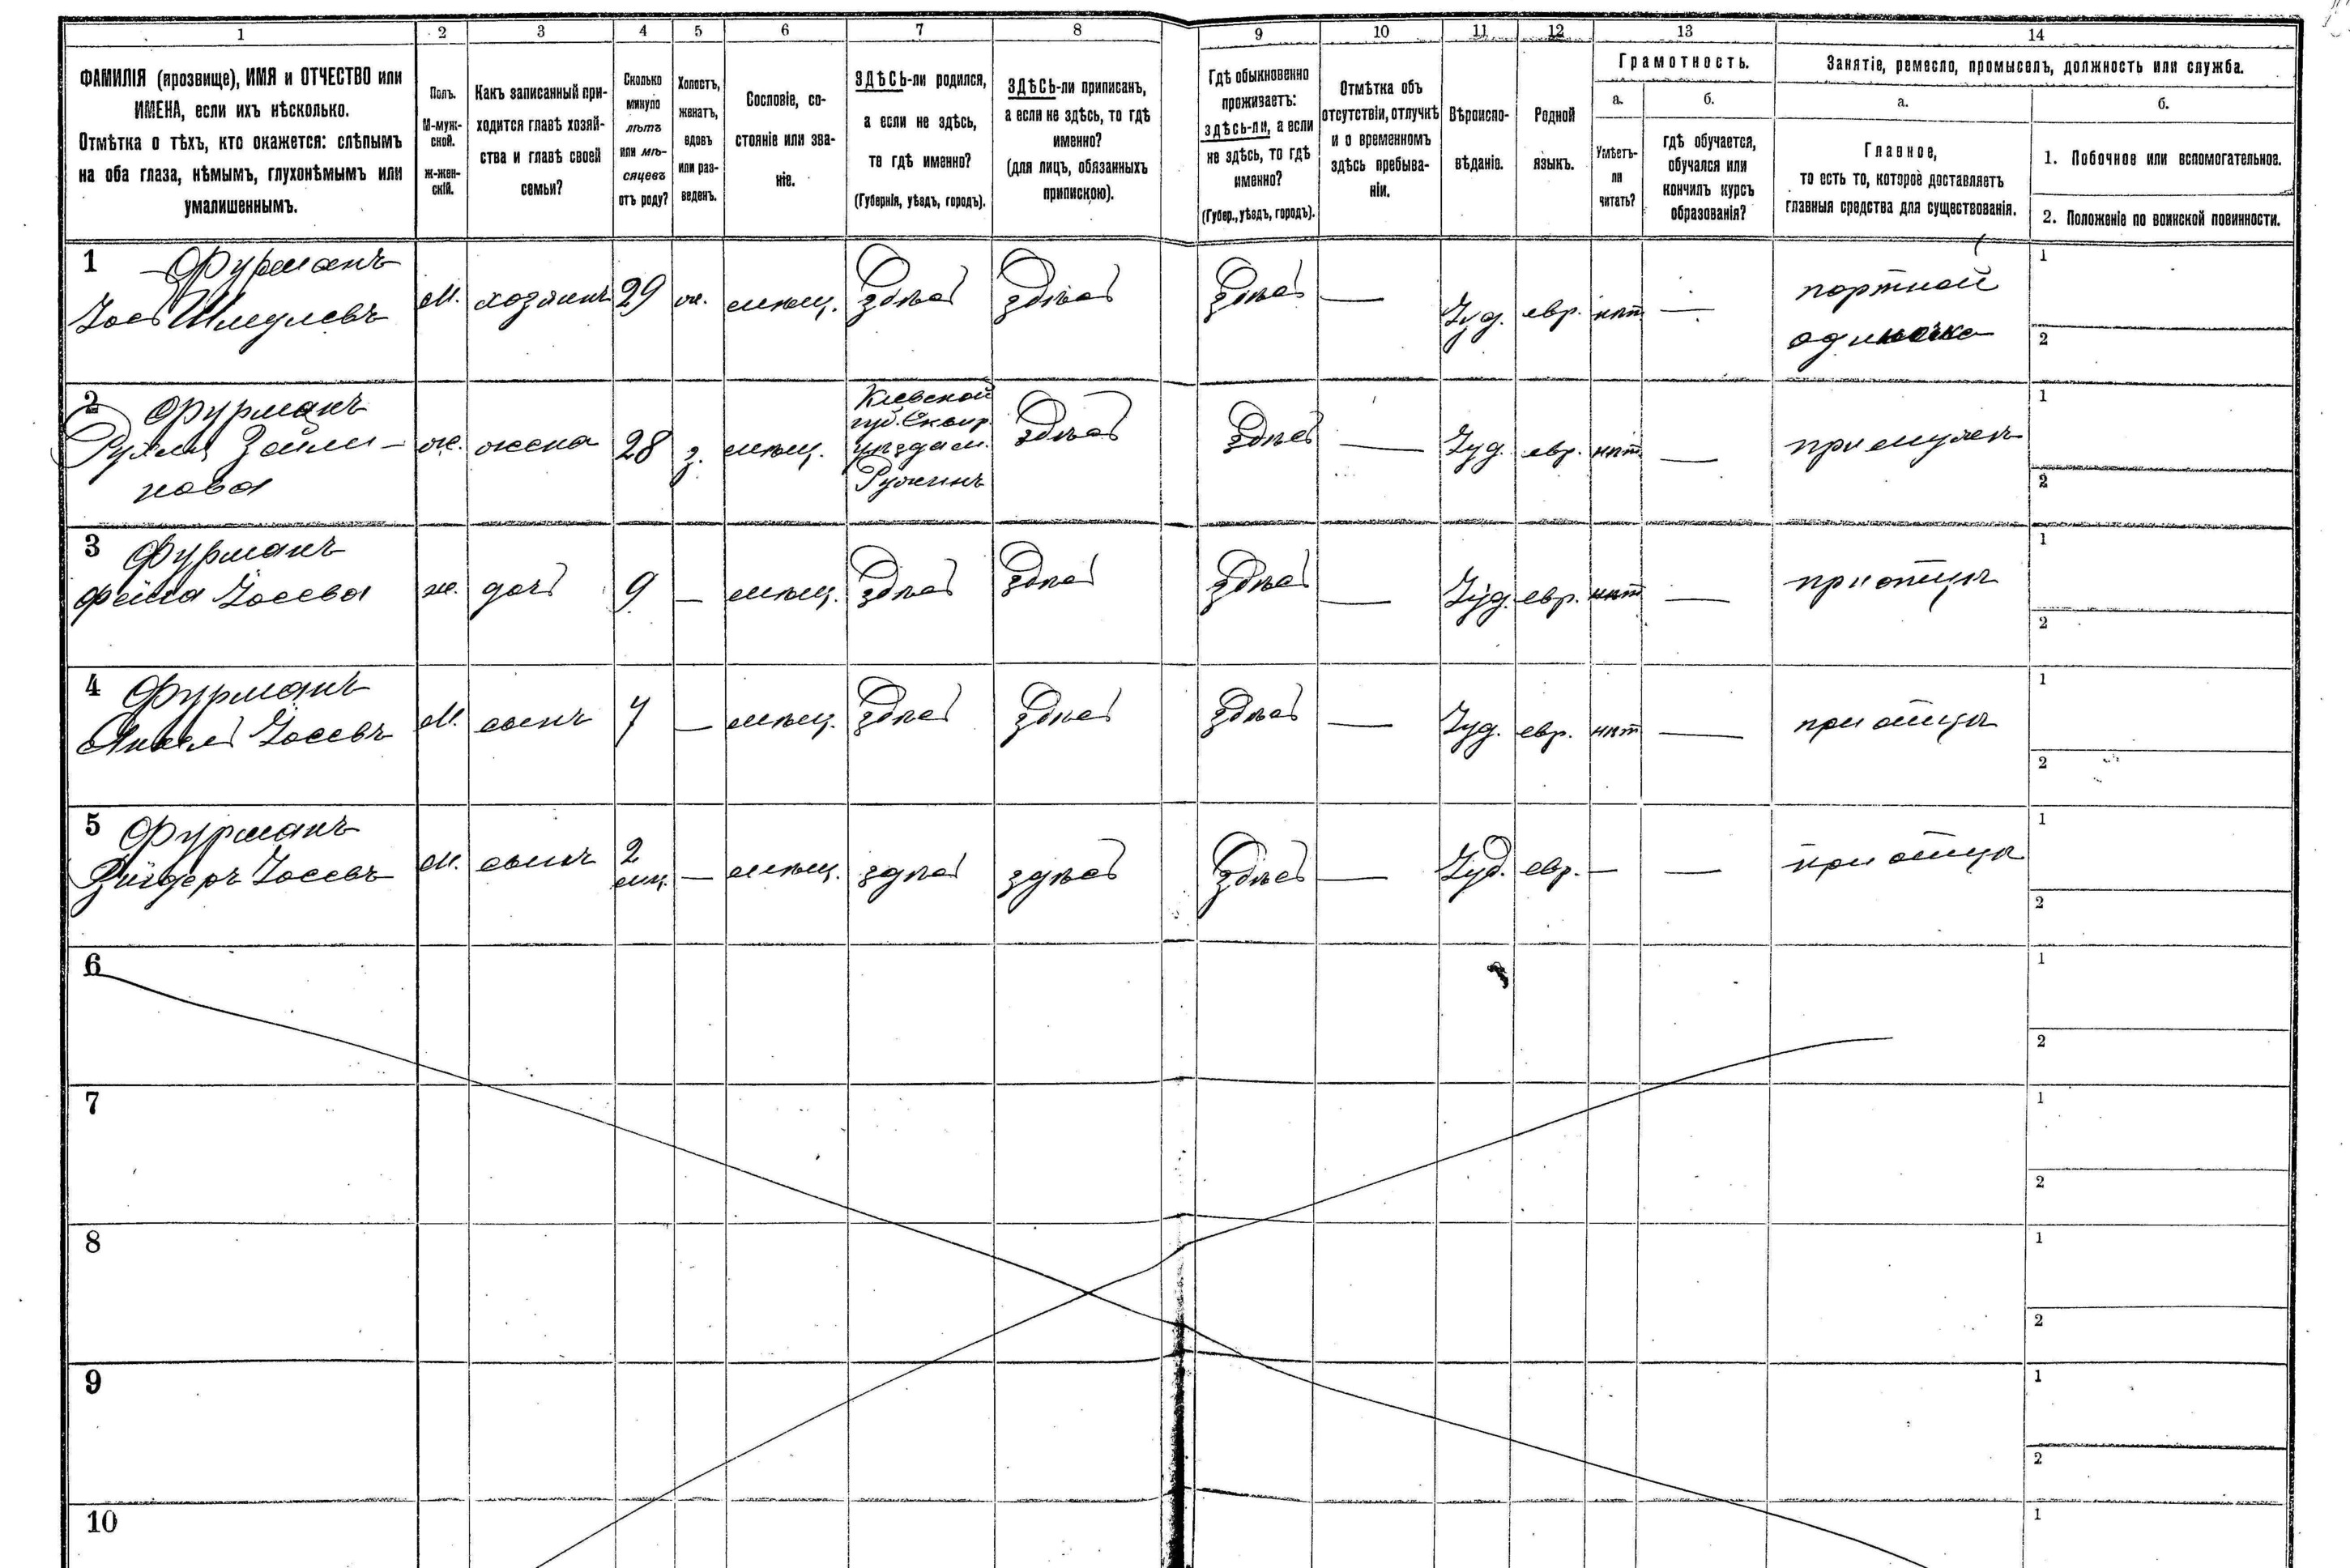 1 2 3 4 5 6 7 8 9 10 11 12 13 14
ФАМИЛІЯ (прозвище), ИМЯ и ОТЧЕСТВО или
ИМЕНА, если ихъ нѣсколько.
Отмѣтка о тѣхъ, кто окажется: слѣпымъ
на оба глаза, нѣмымъ, глухонѣмымъ или
умалишеннымъ.
Полъ.
М-муж-
ской.
ж-жен-
скій.
Какъ записанный при-
ходится главѣ хозяй-
ства и главѣ своей
семьи?
Сколько
минуло
лѣтъ
или мѣ-
сяцевъ
отъ роду?
Холостъ,
женатъ,
вдовъ
или раз-
веденъ.
Сословіе, со-
стояніе или зва-
ніе.
ЗДѢСЬ-ли родился,
а если не здѣсь,
то гдѣ именно?
(Губернія, уѣздъ, городъ).
ЗДѢСЬ-ли приписанъ,
а если не здѣсь, то гдѣ
именно?
(для лицъ, обязанныхъ
припискою).
Гдѣ обыкновенно
проживаетъ:
здѣсь-ли, а если
не здѣсь, то гдѣ
именно?
(Губер., уѣздъ, городъ).
Отмѣтка объ
отсутствіи, отлучкѣ
и о временномъ
здѣсь пребыва-
ніи.
Вѣроиспо-
вѣданіе.
Родной
языкъ.
Грамотность.
а.
Умѣетъ-
ли
читать?
б.
гдѣ обучается,
обучался или
кончилъ курсъ
образованія?
Занятіе, ремесло, промыселъ, должность или служба.
а.
Главное,
то есть то, которое доставляетъ
главныя средства для существованія.
б.
1. Побочное или вспомогательное.
2. Положеніе по воинской повинности.
1 Фурманъ
Іось Шмулевъ
М. хозяинъ 29 ж. мѣщ. здѣсь здѣсь здѣсь — Іуд. евр. нѣт —
портной
одиночка
1
2
2 Фурманъ
Рухля
нова
ж. жена 28 з. мѣщ.
Кіевской
губ. Сквир.
уѣзда м.
Ружинъ
здѣсь здѣсь — Іуд. евр. нѣт — при мужѣ
1
2
3 Фурманъ
Фейга Іосева
ж. дочь 9 — мѣщ. здѣсь здѣсь здѣсь — Іуд. евр. нѣт — при отцѣ
1
2
4 Фурманъ
Іосевъ
М. сынъ 7 — мѣщ. здѣсь здѣсь здѣсь — Іуд. евр. нѣт — при отцѣ
1
2
5 Фурманъ
Іосевъ
М. сынъ 2
мѣс.
— мѣщ. здѣсь здѣсь здѣсь — Іуд. евр. — — при отцѣ
1
2
6
1
2
7
1
2
8
1
2
9
1
2
10
1